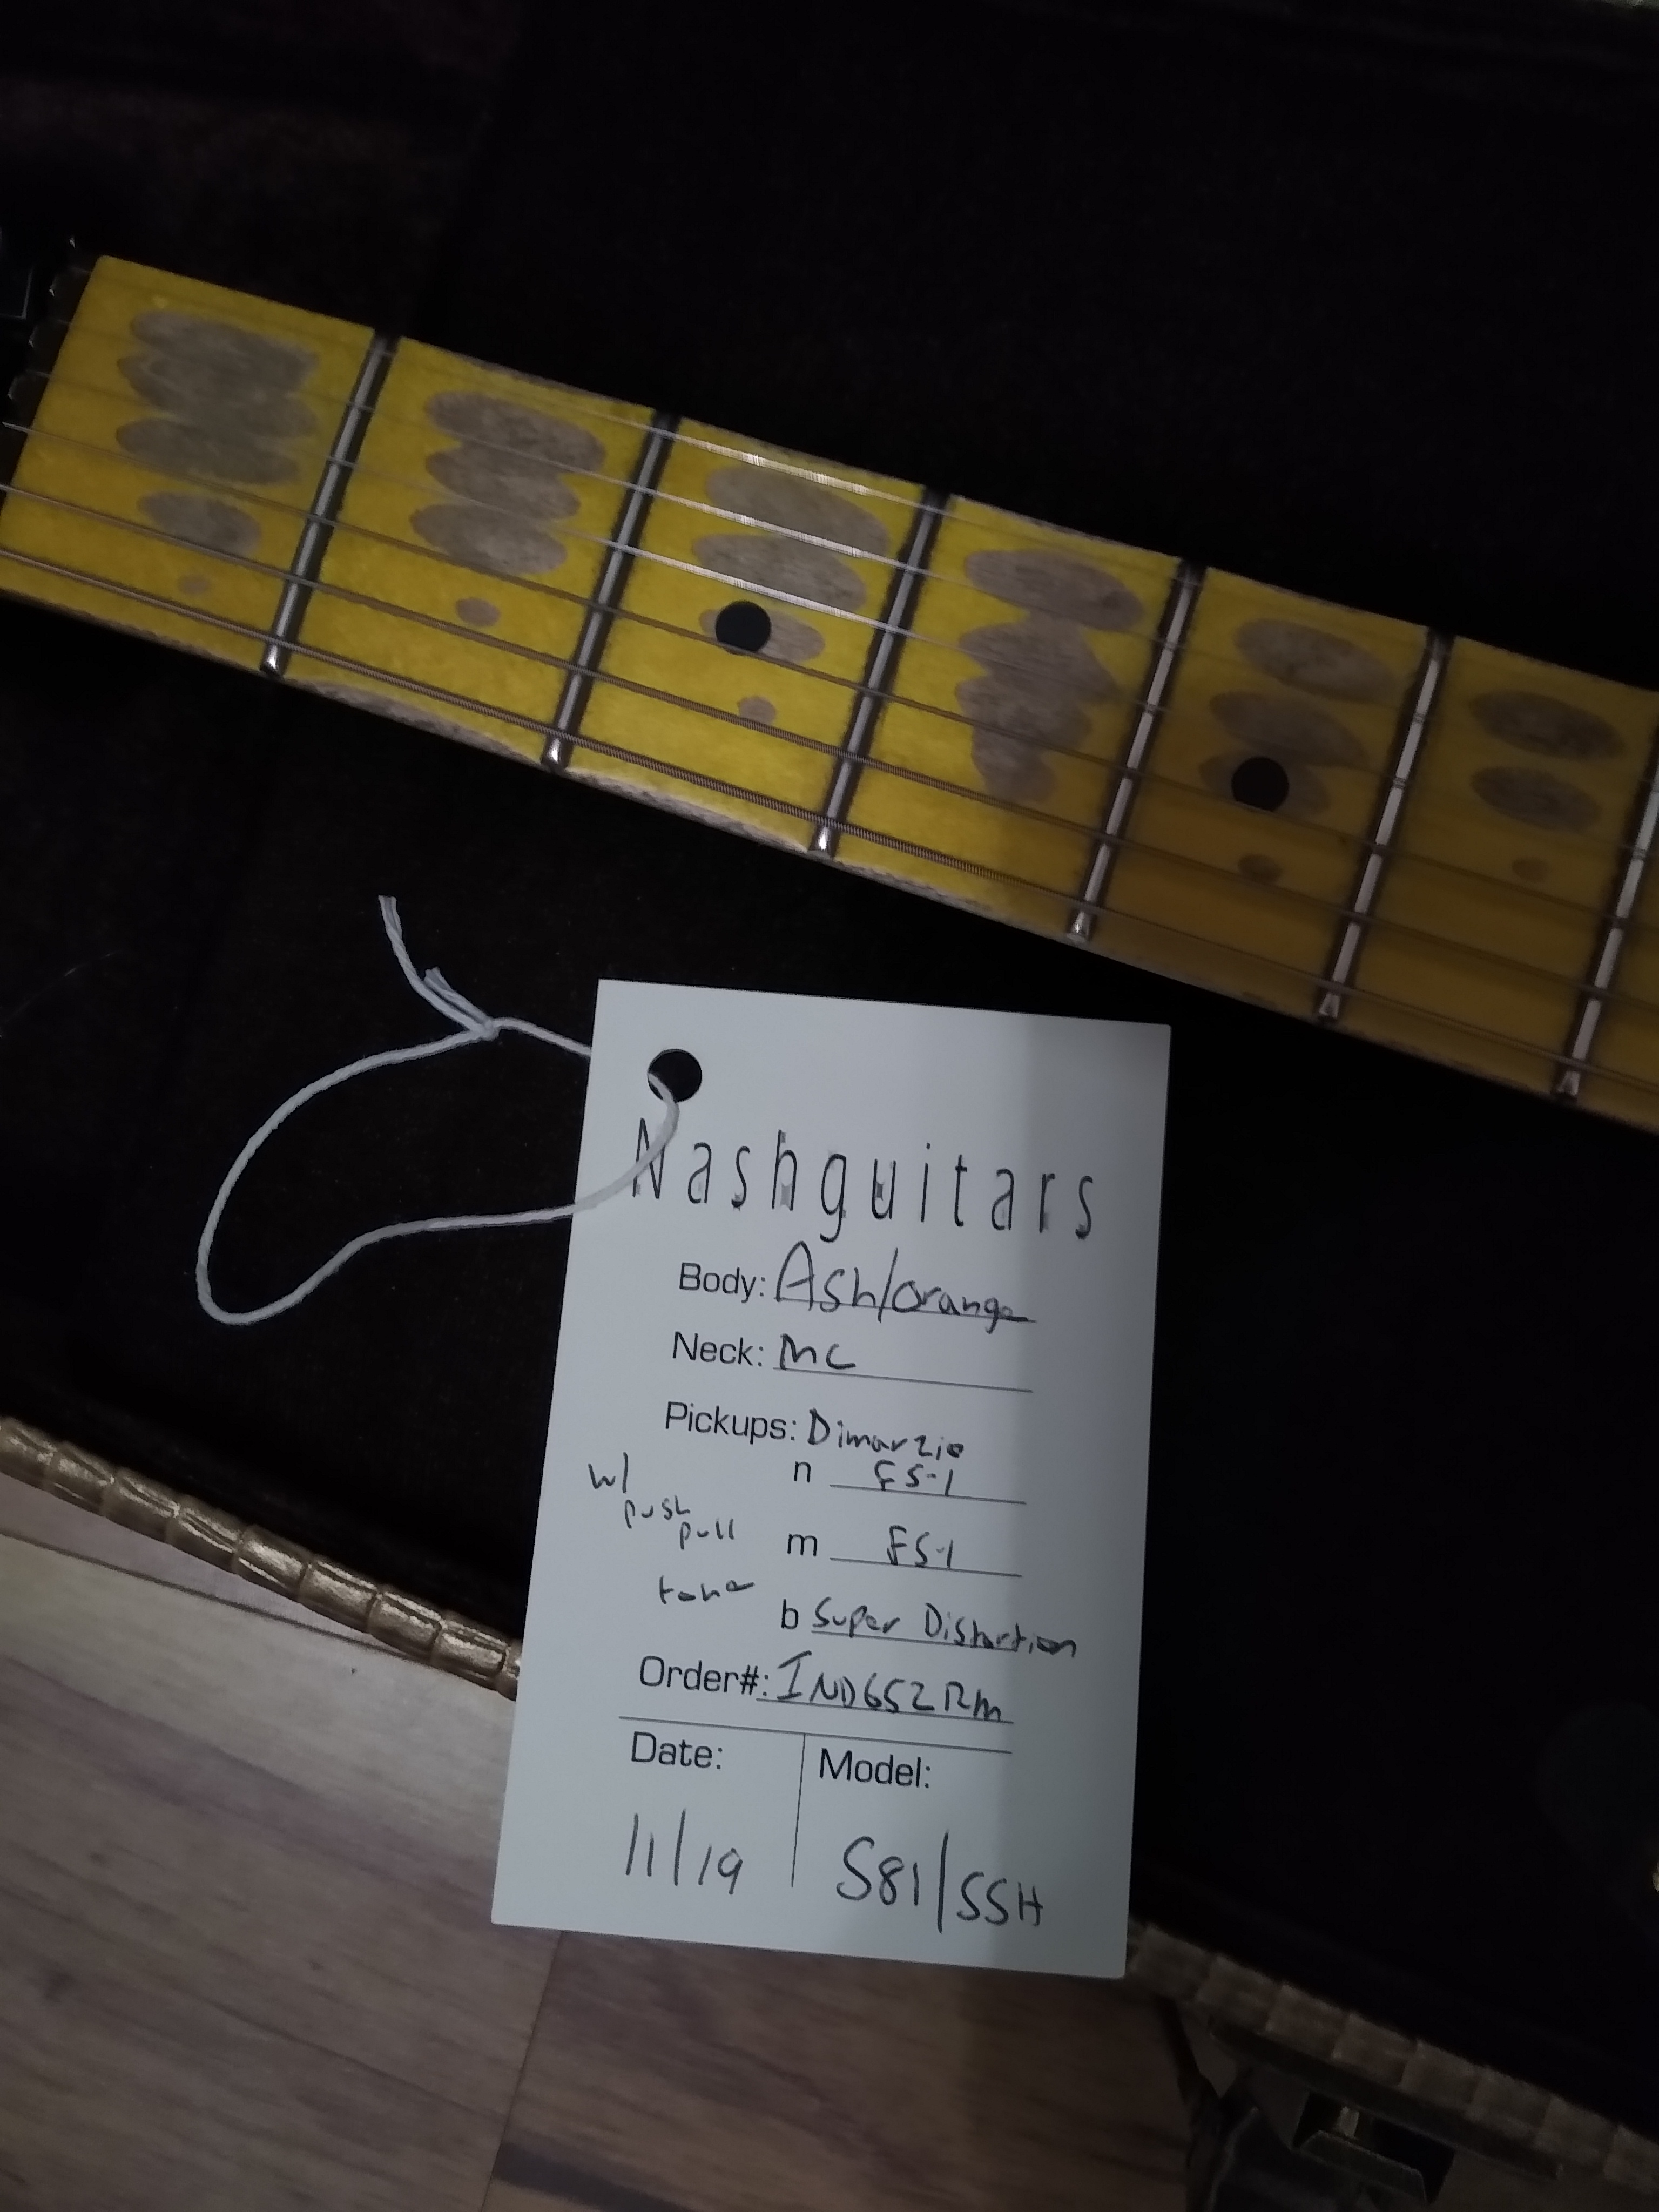 Nashguitars
Body: Ash/Orange
Neck: MC
Pickups: Dimarzio
n FS-1
w/ push pull tone
m FS-1
b Super Distortion
Order#: IND652RM
Date: Model:
11/19 S81/SSH